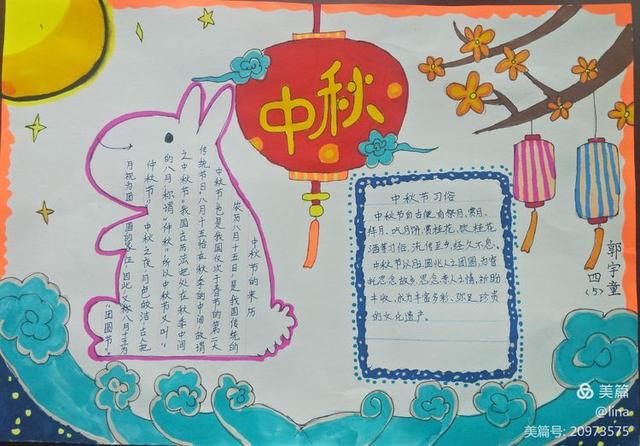 中秋
中秋节的来历
农历八月十五日，是我国传统的
中秋节，也是我国仅次于春节的第二大
传统节日。八月十五恰在秋季的中间，故谓
之中秋节。我国古历法把处在秋季中间
的八月，称谓“仲秋”，所以中秋节又叫“
仲秋节”。中秋之夜，月色皎洁，古人把
月视为团圆的象征，因此，又称八月十五为
“团圆节”。
中秋节习俗
中秋节自古便有祭月、赏月、
拜月、吃月饼、赏桂花、饮桂花
酒等习俗，流传至今，经久不息。
中秋节以月之圆兆人之团圆，为寄
托思念故乡，思念亲人之情，祈盼
丰收、幸福，成为丰富多彩、弥足珍贵
的文化遗产。
郭宇童
四
(5)
美篇
@lina
美篇号: 20973575